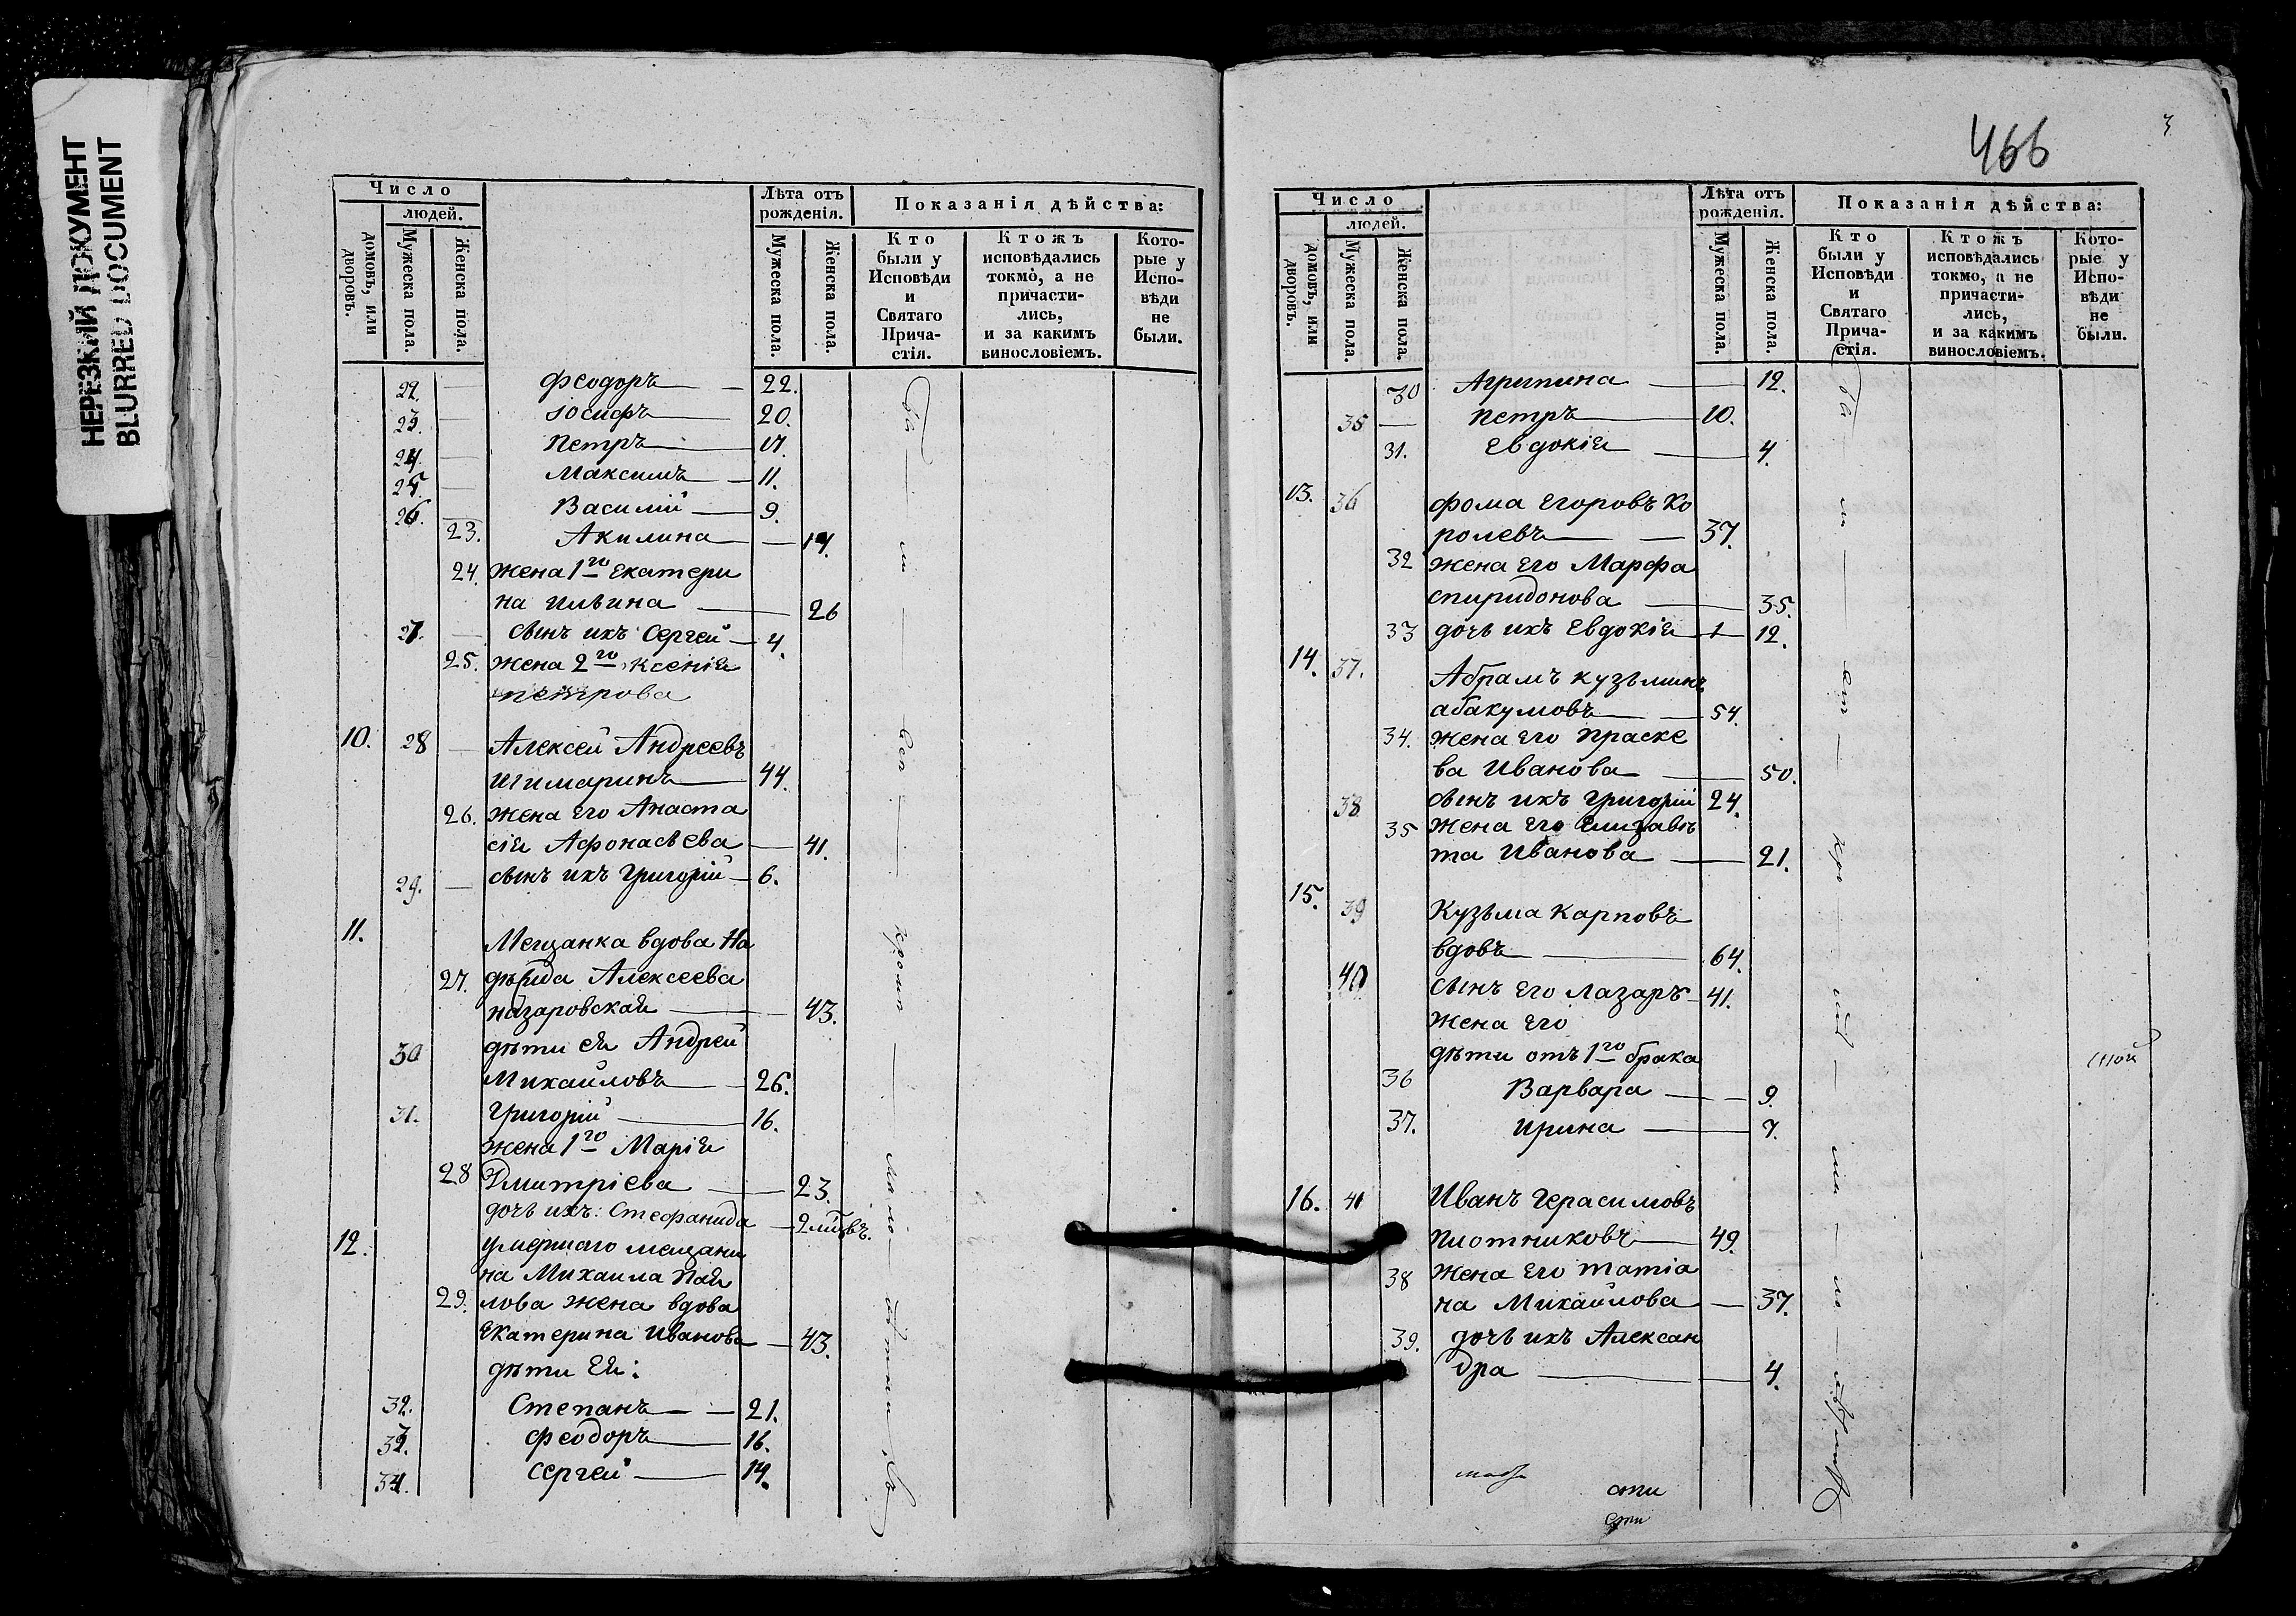 НЕРЕЗКИЙ ДОКУМЕНТ
BLURRED DOCUMENT
Число
людей.
домовъ, или дворовъ.
Мужеска пола.
Женска пола.
Лѣта отъ рожденія.
Мужеска пола.
Женска пола.
Показанія дѣйства:
Кто были у Исповѣди и Святаго Прича-стія.
Ктожъ исповѣдались токмо, а не причасти-лись, и за какимъ винословіемъ.
Кото-рые у Испо-вѣди не были.
22. — Феодоръ — 22.
23. — Іосифъ — 20.
24. — Петръ — 17.
25. — Максимъ — 11.
26. — Василій — 9.
23. Акилина — 14.
24. жена 1го Екатери
на Ильина — 26
27. — сынъ ихъ Сергей — 4.
25. жена 2го Ксенія
Петрова
10. 28 — Алексей Андреевъ
— 44.
26. жена его Анаста
сія Афонасьева — 41.
29. — сынъ ихъ Григорій — 6.
11. Мещанка вдова На
27. дѣжда Алексеева
Назаровская — 43.
30 дѣти ея Андрей
Михайловъ — 26.
31. Григорій — 16.
жена 1го Марія
28 Дмитріева — 23.
дочь ихъ: Стефанида — 2
12. умершаго мещани
на Михаила Пав
29. лова жена вдова
Екатерина Иванова — 43.
дѣти Ея:
32. Степанъ — 21.
33. Феодоръ — 16.
34. Сергей — 14.
466
3
Число
людей.
домовъ, или дворовъ.
Мужеска пола.
Женска пола.
Лѣта отъ рожденія.
Мужеска пола.
Женска пола.
Показанія дѣйства:
Кто были у Исповѣди и Святаго Прича-стія.
Ктожъ исповѣдались токмо, а не причасти-лись, и за какимъ винословіемъ.
Кото-рые у Испо-вѣди не были.
30 Агрипина — 12.
35 — Петръ — 10.
31. Евдокія — 4.
13. 36 Фома Егоровъ Ко
ролевъ — 37.
32 жена его Марфа
Спиридонова — 35.
33 дочь ихъ Евдокія — 12.
14. 37. Абрамъ Кузьминъ
Абакумовъ — 54.
34. жена его Праске
ва Иванова — 50.
38 сынъ ихъ Григорій 24.
35 жена его Елизаве
та Иванова — 21.
15. 39 Кузьма Карповъ
вдовъ — 64.
40 сынъ его Лазарь — 41.
жена его
дѣти отъ 1го брака
36 Варвара — 9.
37. Ирина — 7.
16. 41 Иванъ Герасимовъ
Плотниковъ — 49.
38 жена его Татіа
на Михайлова — 37.
39. дочь ихъ Алексан
дра — 4.